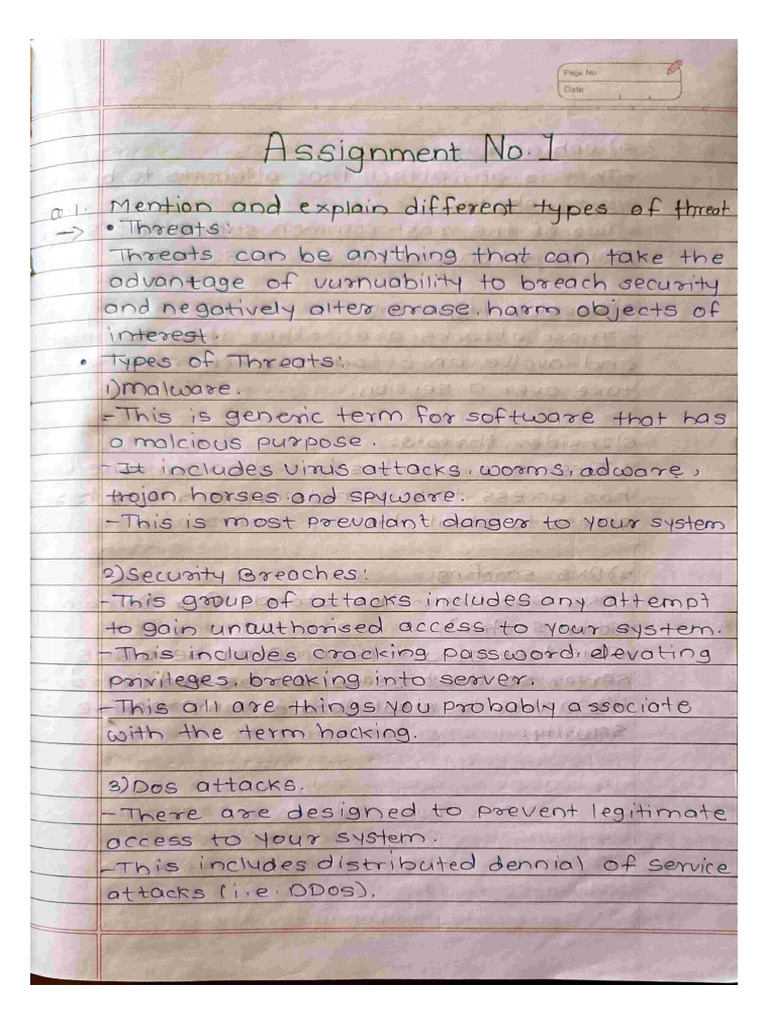 Page No
Date
Assignment No. 1
Q.1. Mention and explain different types of threat
→ • Threats:
Threats can be anything that can take the
advantage of vurnuability to breach security
and negatively alter, erase, harm objects of
interest.
• Types of Threats:
1) Malware.
- This is generic term for software that has
a malcious purpose.
- It includes virus attacks, worms, adware,
trojan horses and spyware.
- This is most prevaldnt danger to your system
2) Security Breaches:
- This group of attacks includes any attempt
to gain unauthorised access to your system.
- This includes cracking password, elevating
privileges, breaking into server.
- This all are things you probably associate
with the term hacking.
3) Dos attacks.
- There are designed to prevent legitimate
access to your system.
- This includes distributed dennial of service
attacks (i.e. DDos).